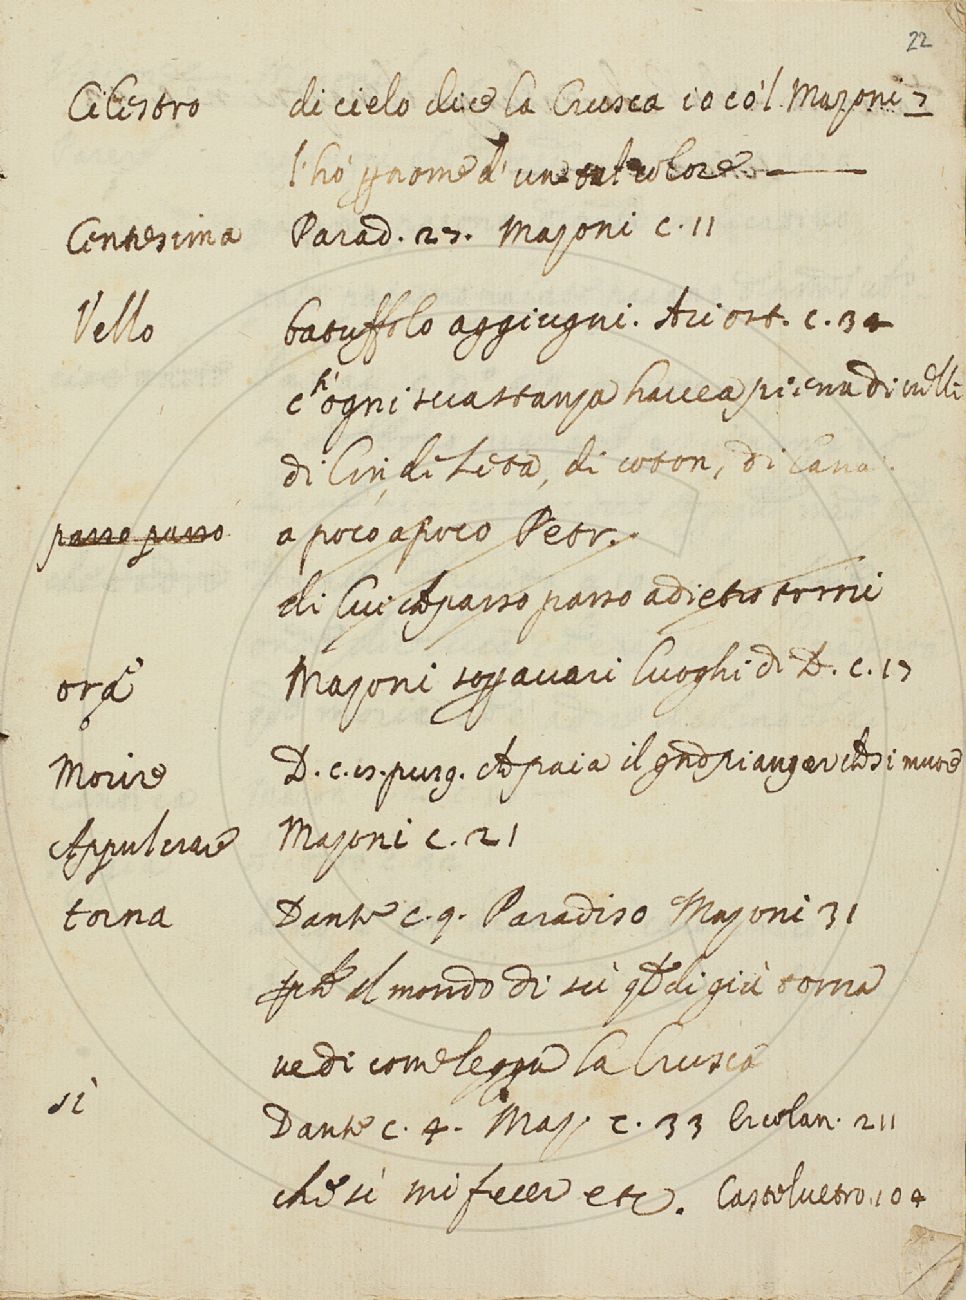 22
Cilestro di cielo dice la Crusca io co'l Mazoni 7
l'hò p nome d' un tal colore
Centesima Parad. 27. Mazoni c. 11
Vello batuffolo aggiugni. Ariost. c. 34
ch' ogni sua stanza havea piena di velli
di Lin, di Seta, di coton, di Lana.
passo passo a poco a poco Petr.
di Lui ch passo passo a dietro torni
ora Mazoni sopa vari luoghi di D. c. 17
Morire D. c. 15. purg. ch paia il pianger ch si muore
Appulcrare Mazoni c. 21
torna Dante c. 9. Paradiso Mazoni 31
al mondo di sù di giù torna
vedi come legga la Crusca
sì Dante c. 4. Maz. c. 33 Ercolan. 211
che sì mi fecer etc. Casteluetro. 104